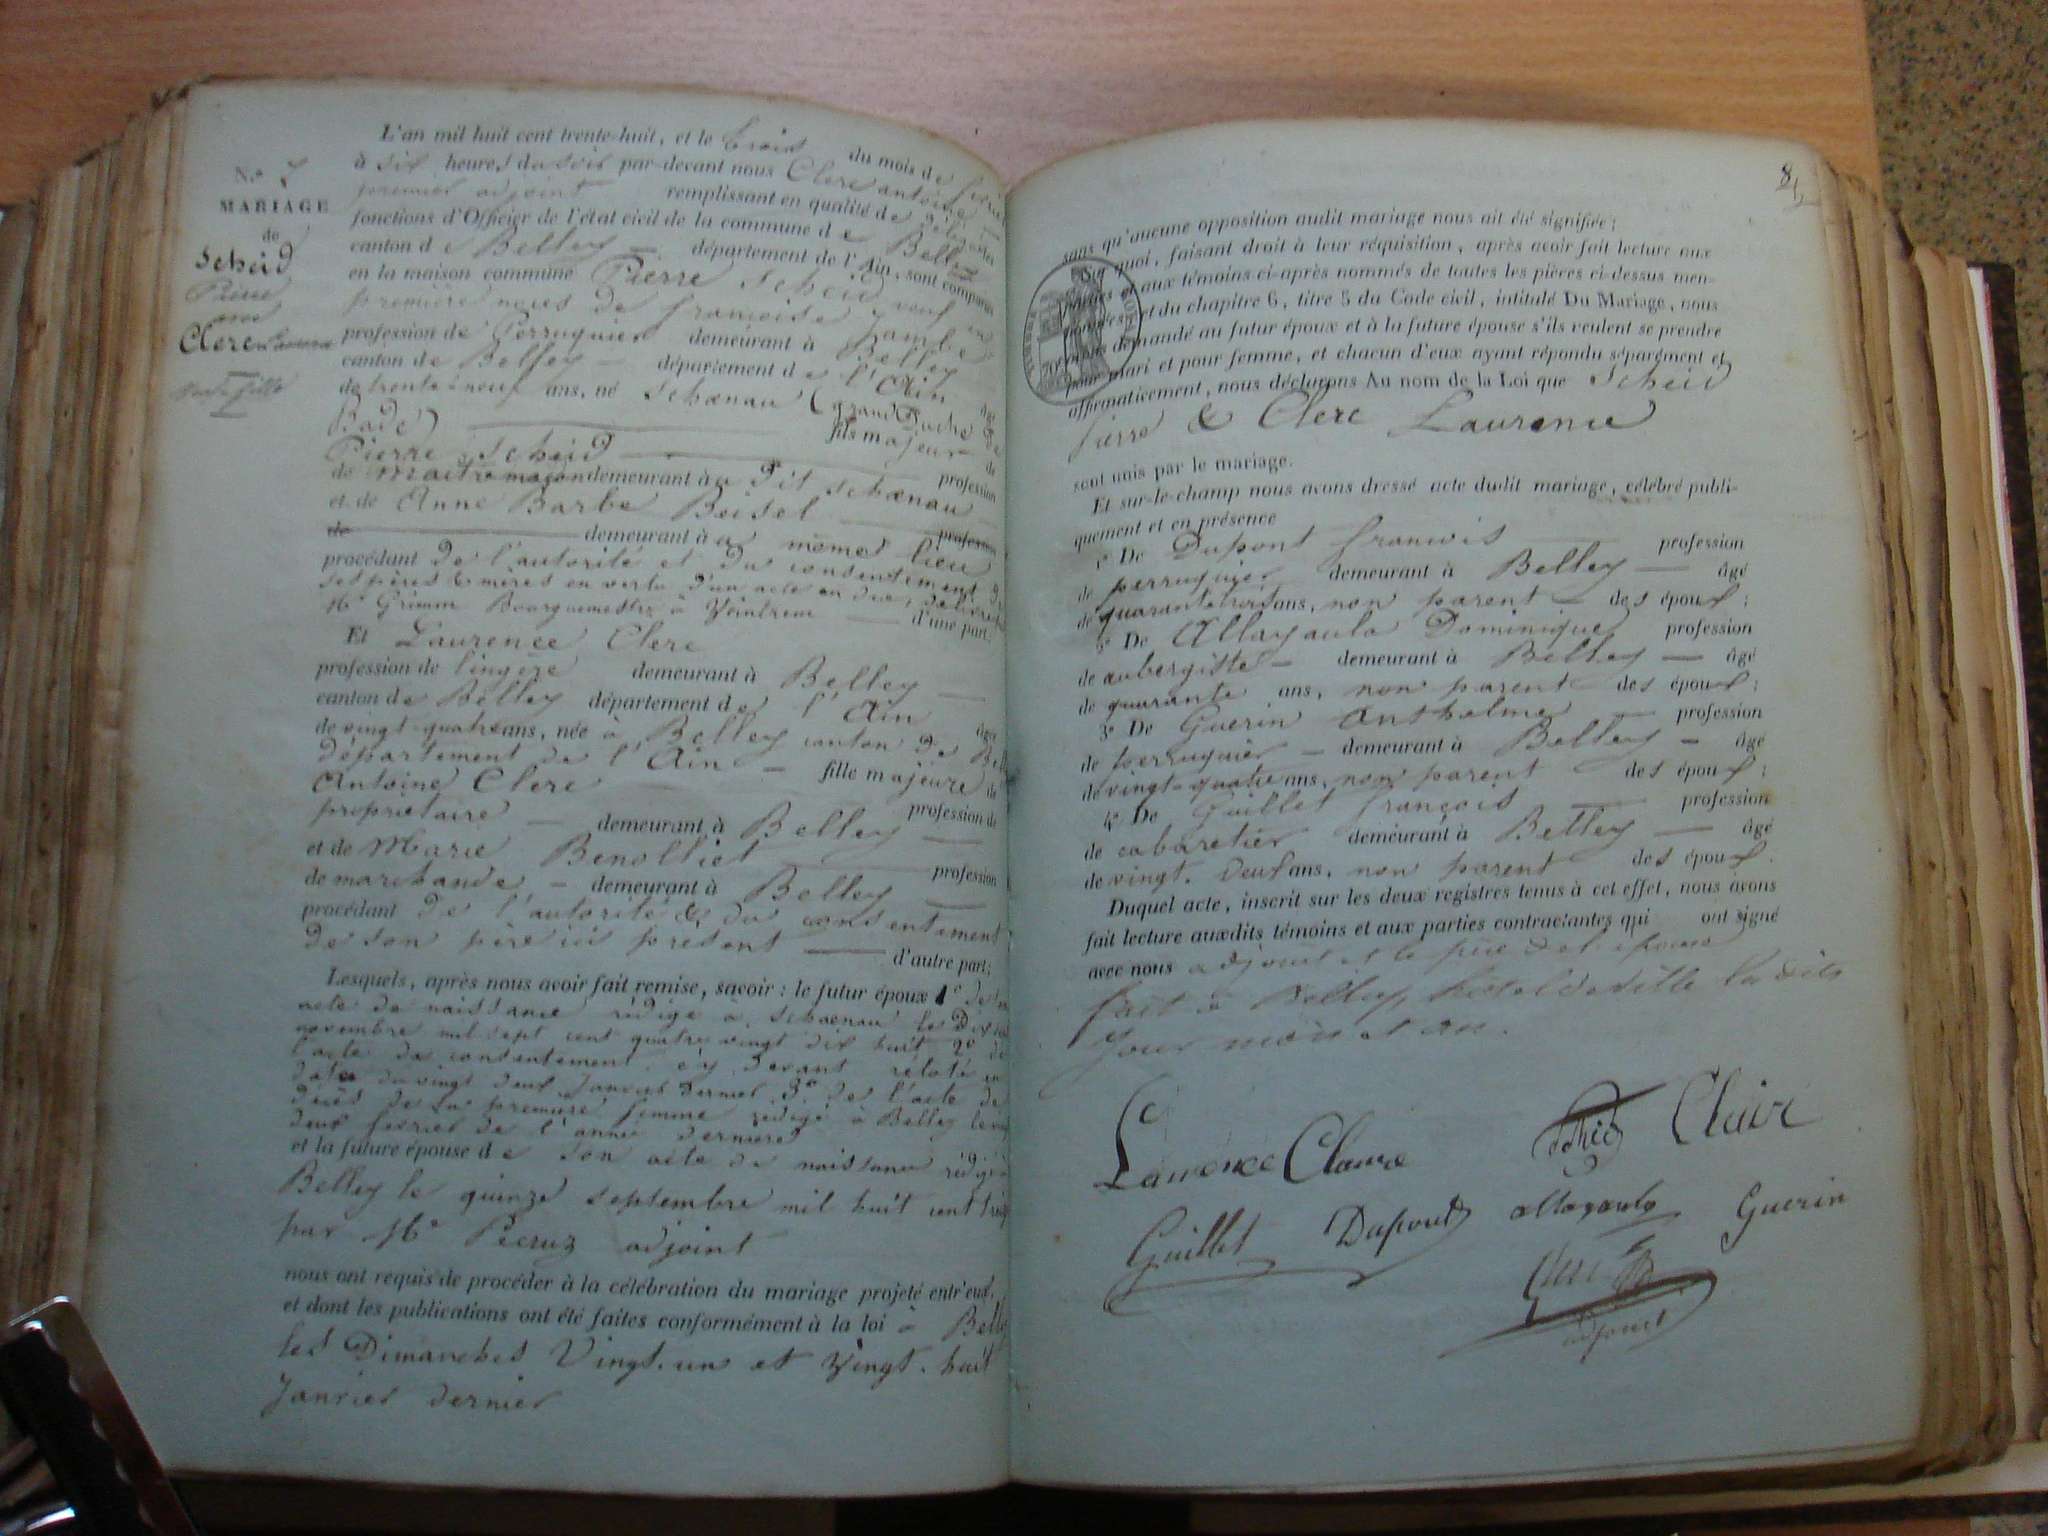 N.º 7
MARIAGE
de
Scheid
Pierre
avec
Clerc Laurence
L'an mil huit cent trente-huit, et le trois du mois de février
à six heures du soir par-devant nous Clerc antoine
premier adjoint remplissant en qualité de
fonctions d'Officier de l'état civil de la commune de Belley
canton de Belley — département de l'Ain, sont comparus
en la maison commune Pierre Scheid veuf en
première noces de françoise
profession de Perruquier demeurant à Belley
canton de Belley — département de l'Ain âgé
de trente-neuf ans, né Schœnau (grand Duché de
Bade) fils majeur de
Pierre Scheid profession
de maitre maçon demeurant à u dit Schœnau
et de Anne Barbe Beisel profession
de demeurant à au même lieu
procédant de l'autorité et du consentement de
ses pères & mères en vertu d'un acte en due, délivré
Mr Grimm Bourguemestre à d'une part;
Et Laurence Clerc
profession de lingère demeurant à Belley —
canton de Belley département de l'Ain âgé
de vingt-quatre ans, née à Belley canton de Belley
département de l'Ain — fille majeure de
Antoine Clerc profession de
propriétaire — demeurant à Belley —
et de Marie Benolliet profession
de marchande — demeurant à Belley —
procédant de l'autorité & du consentement
de son père ici présent d'autre part;
Lesquels, après nous avoir fait remise, savoir: le futur époux 1º de son
acte de naissance rédigé à Schœnau le Dix
novembre mil sept cent quatre vingt dix huit 2º de
l'acte de consentement ci devant rélaté en
date du vingt deux Janvier dernier 3º de l'acte de
décès de sa première femme rédigé à Belley le
deux février de l'année dernière
et la future épouse de son acte de naissance rédigé à
Belley le quinze septembre mil huit cent treize
par Mr Pecruz adjoint
nous ont requis de procéder à la célébration du mariage projeté entr'eux,
et dont les publications ont été faites conformément à la loi à Belley
les Dimanches Vingt-un et Vingt-huit
Janvier dernier
8
sans qu'aucune opposition audit mariage nous ait été signifiée;
Sur quoi, faisant droit à leur réquisition, après avoir fait lecture aux
parties et aux témoins ci-après nommés de toutes les pièces ci-dessus men-
tionnées et du chapitre 6, titre 5 du Code civil, intitulé Du Mariage, nous
avons demandé au futur époux et à la future épouse s'ils veulent se prendre
pour mari et pour femme, et chacun d'eux ayant répondu séparément et
affirmativement, nous déclarons Au nom de la Loi que Scheid
pierre & Clerc Laurence
sont unis par le mariage.
Et sur-le-champ nous avons dressé acte dudit mariage, célébré publi-
quement et en présence
1º De Dupont francois profession
de perruquier demeurant à Belley — âgé
de quarante trois ans, non parent des époux;
2º De Allagaula Dominique profession
de aubergiste — demeurant à Belley — âgé
de quarante ans, non parent des époux;
3º De Guerin Anthelme profession
de perruquier — demeurant à Belley — âgé
de vingt-quatre ans, non parent des époux;
4º De Guillet françois profession
de cabaretier demeurant à Belley — âgé
de vingt-deux ans, non parent des époux.
Duquel acte, inscrit sur les deux registres tenus à cet effet, nous avons
fait lecture auxdits témoins et aux parties contractantes qui ont signé
avec nous adjoint et le père de l'épouse
fait à Belley, hôtel de ville les dits
Jour mois et an.
Laurence Claire Scheid Clair
Guillet Dupont allagaula Guerin
adjoint